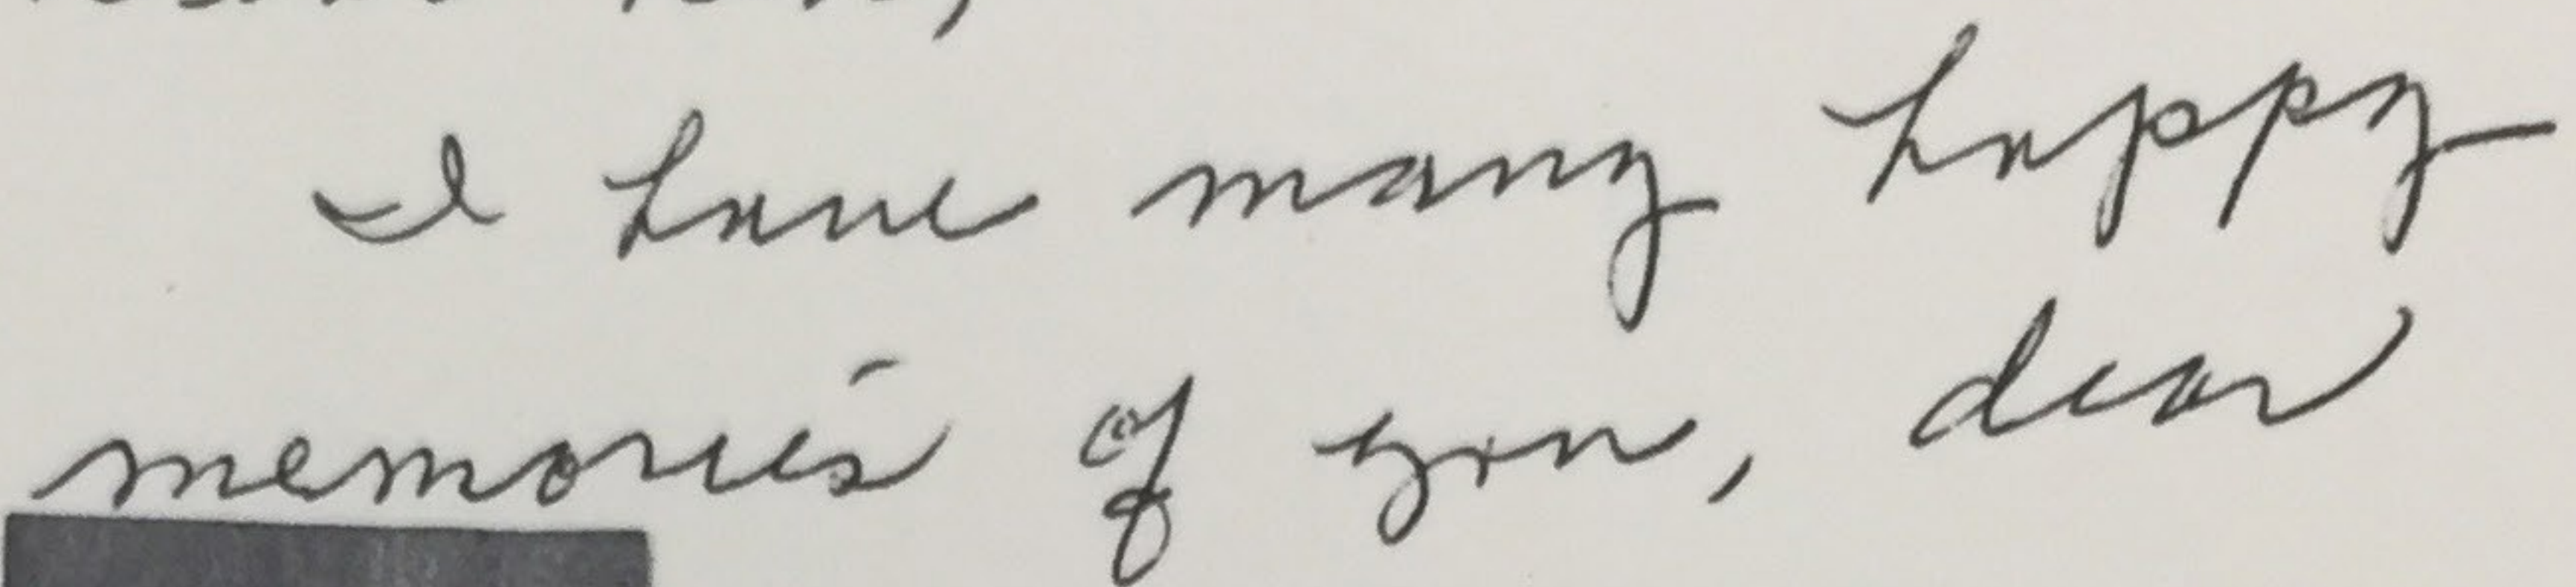 I have many happy
memories of you, dear